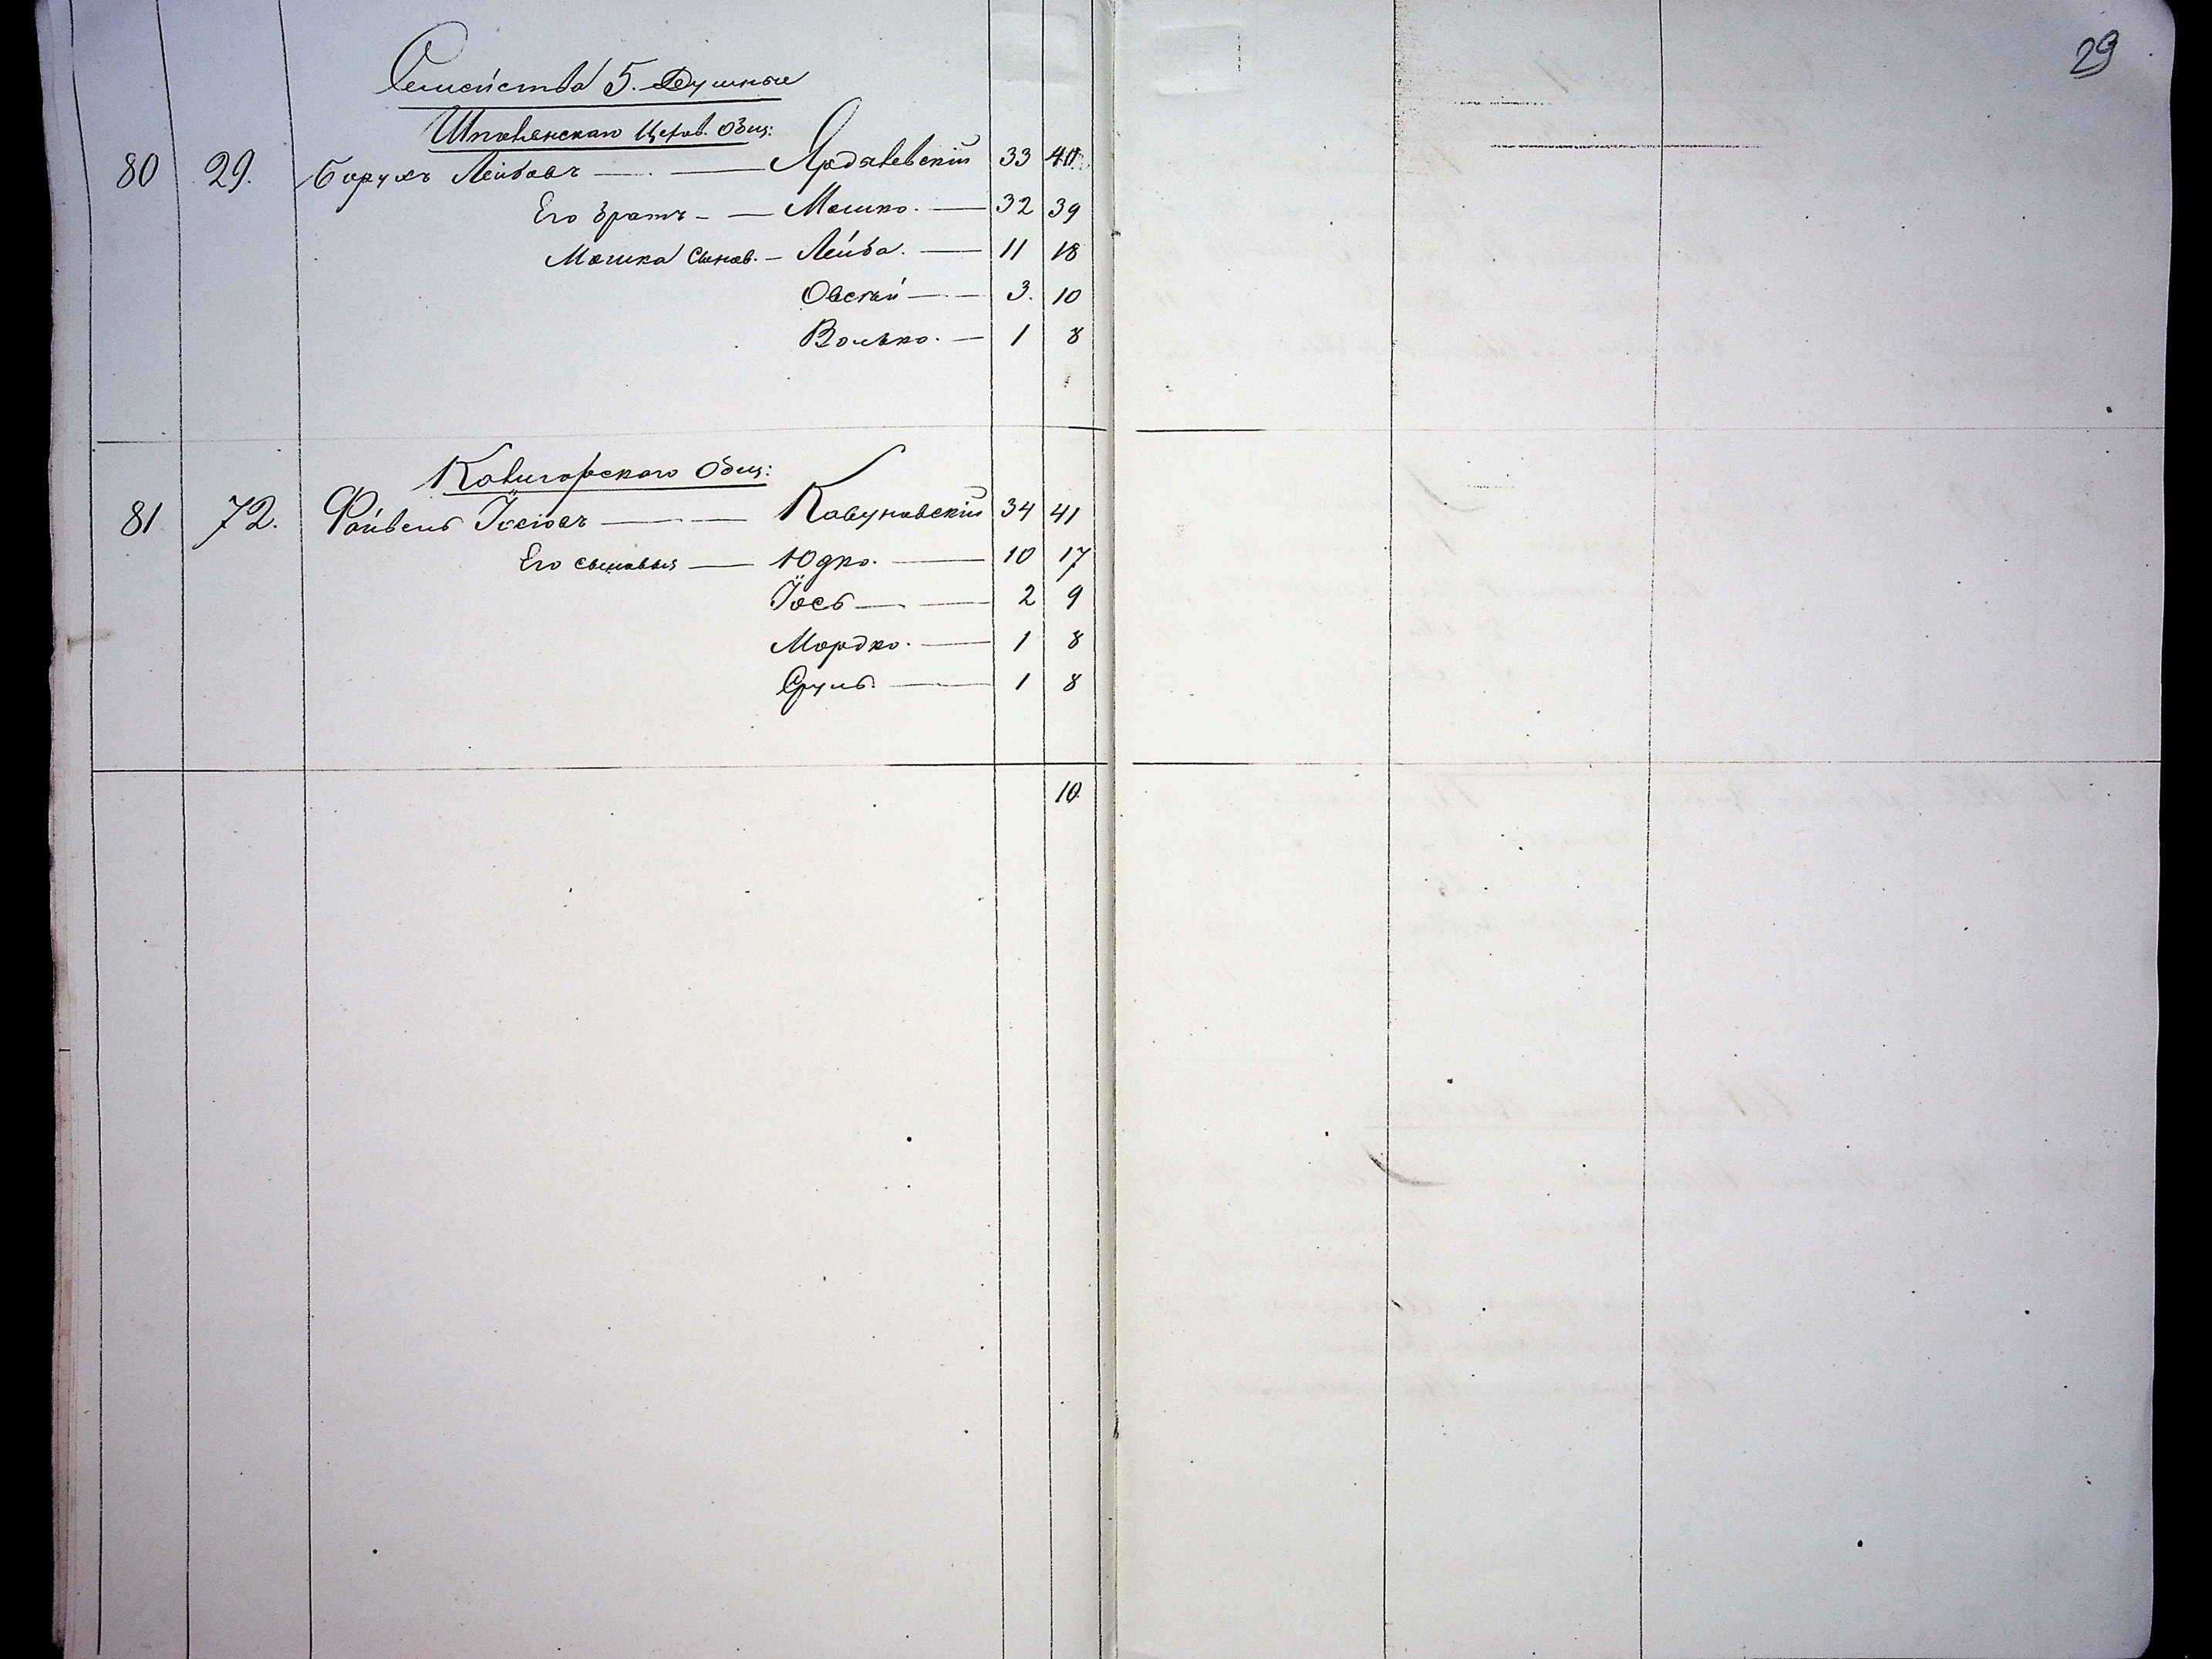 29
Семейства 5. Душные
Шполянскаго Общ:
80 29. Борухъ Лейбовъ — Ярдалевскій 33 40
Его братъ — Мошко. — 32 39
Мошка Сынов. — Лейба. — 11 18
Овсѣй — 3. 10
Волько. — 1 8
Общ:
81 72. Файвель Іосіовъ — Кавуновскій 34 41
Его сыновья — Юдко. — 10 17
Іось — 2 9
Мордко. — 1 8
Сруль. — 1 8
10